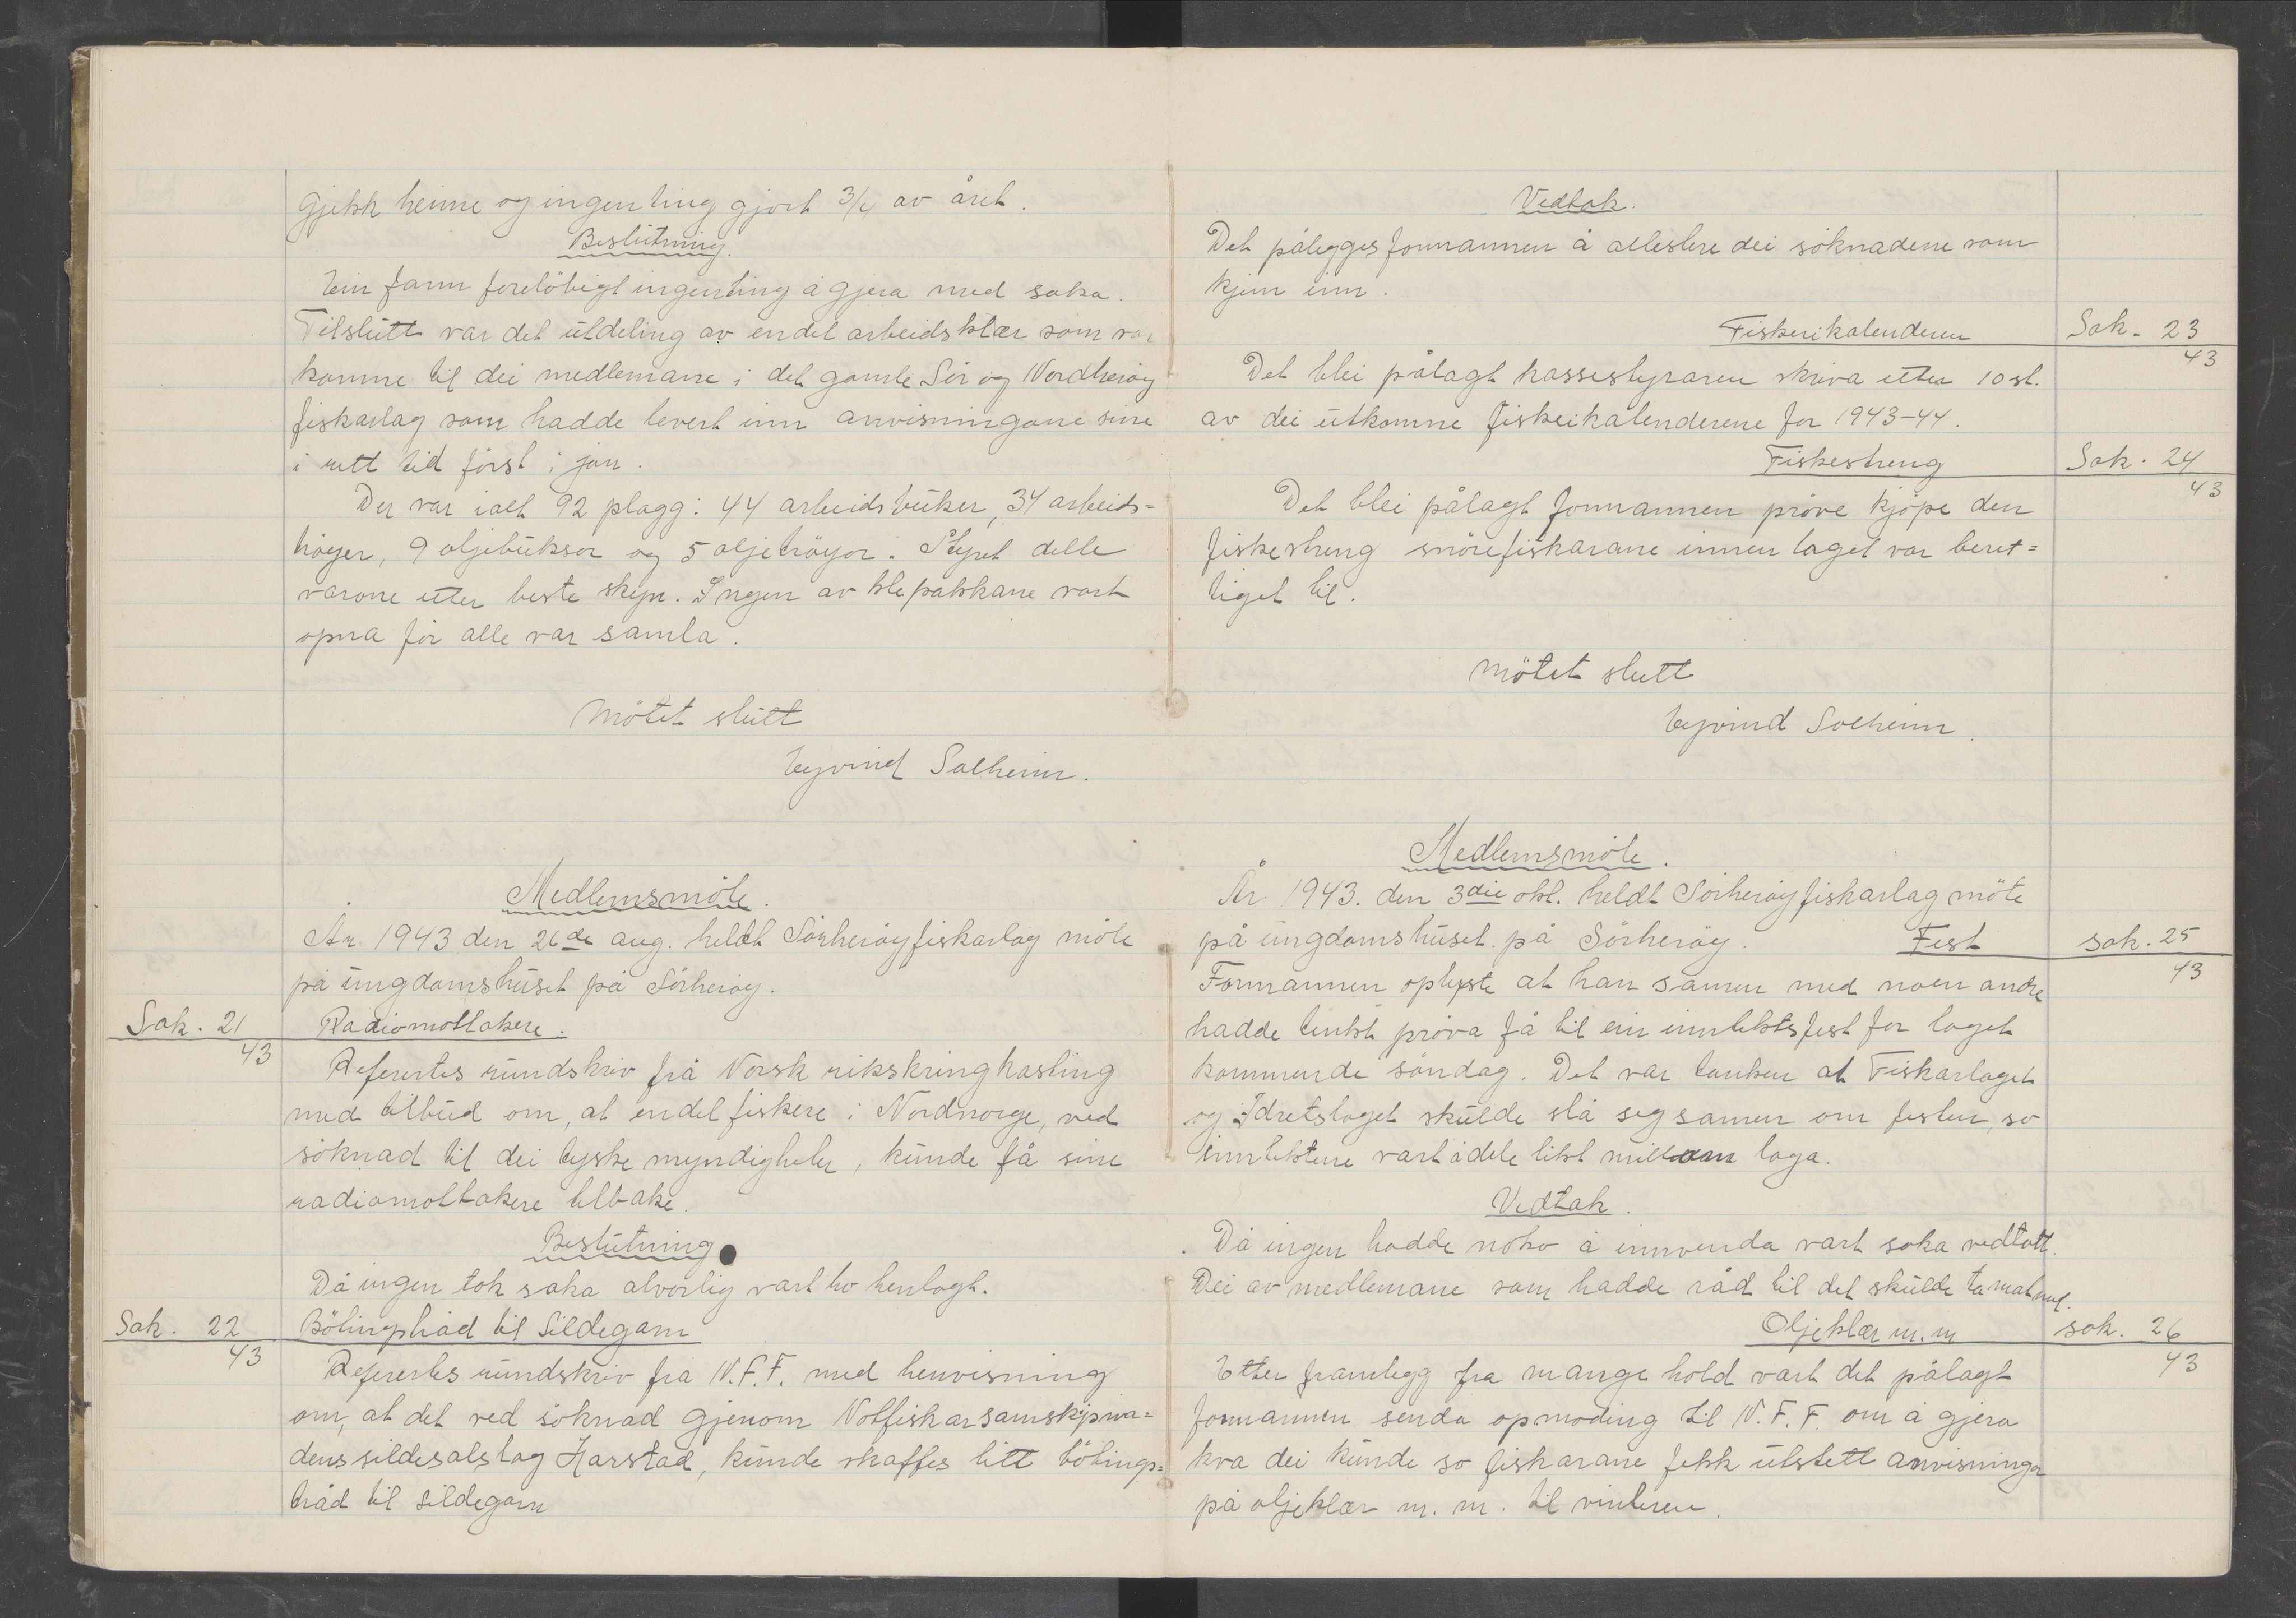 gjekk heime og ingenting gjort 3/4 av året.
Beslutning.
Ein fann foreløbigt ingenting å gjera med saka.
Tilslutt var det utdeling av endel arbeidsklær som var
komne til dei medlemane i det gamle Sør og Nordherøy
fiskarlag som hadde levert inn anvisningane sine
i rett tid først i jan.
Der var ialt 92 plagg: 44 arbeidsbukser, 34 arbeids=
trøyer, 9 oljebukser og 5 oljetrøyor. Styret delte
varone etter beste skjyn. Ingen av klepakkane vart
opna før alle var samla.
Møtet slutt
Eyvind Solheim.
Medlemsmøte.
År 1943 den 26de aug. heldt Sørherøyfiskarlag møte
på ungdomshuset på Sørherøy.
Sak. 21
43
Radiomottakere.
Referertes rundskriv frå Norsk rikskringkasting
med tilbud om, at endel fiskere i Nordnorge, ved
søknad til dei tyske myndigheter, kunde få sine
radiomottakere tilbake.
Beslutning
Då ingen tok saka alvorlig vart ho henlagt.
Sak. 22
43
Bøtingstråd til Sildegarn
Referertes rundskriv fra N.F.F. med henvisning
om, at det ved søknad gjenom Notfiskarsamskipna=
dens sildesalslag Harstad, kunde skaffes litt bøtings=
tråd til sildegarn
Vedtak.
Det pålegges formannen å attestere dei søknadene som
kjem inn.
Fiskerikalenderen
Sak. 23
43
Det blei pålagt kassestyraren skriva etter 10 st.
av dei utkomne fiskeikalenderene for 1943-44.
Fiskestreng
Sak. 24
43
Det blei pålagt formannen prøve kjøpe den
fiskestreng snørefiskarane innen laget var beret=
tiget til.
Møtet slutt
Eyvind Solheim.
Medlemsmøte.
År 1943. den 3die okt. heldt Sørherøyfiskarlag møte
på ungdomshuset på Sørherøy.
Fest
sak. 25
43
Formannen oplyste at han samen med noen andre
hadde tenkt prøva få til ein inntektsfest for laget
kommende søndag. Det var tanken at Fiskarlaget
og Idretslaget skulde slå seg samen om festen, so
inntektene vart å dele likt millom laga.
Vedtak.
Då ingen hadde noko å innvenda vart saka vedtatt.
Dei av medlemane som hadde råd til det skulde ta mat med.
Oljeklær m.m
sak. 26
43
Etter framlegg fra mange hold vart det pålagt
formannen senda opmoding til N.F.F. om å gjera
kva dei kunde so fiskarane fekk utstett anvisninga
på oljeklær m.m. til vinteren.